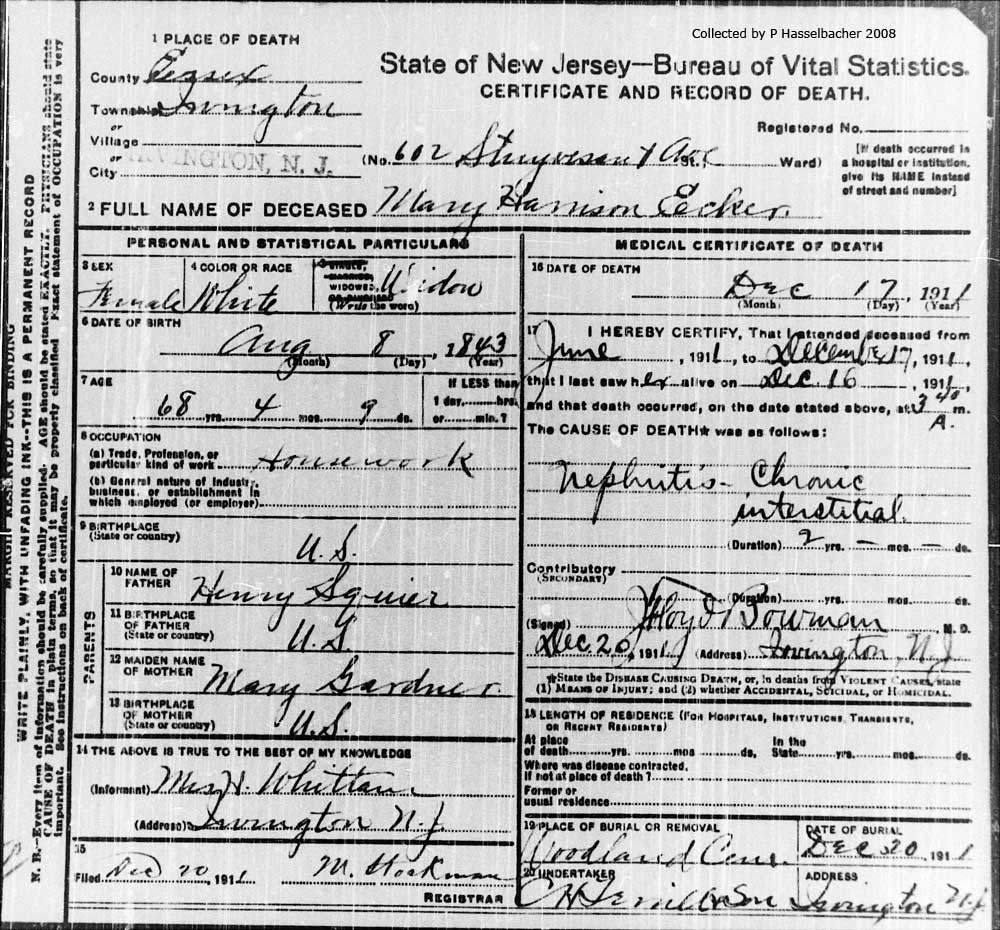 Collected by P Hasselbacher 2008
1 PLACE OF DEATH
County Essex
Township Irvington
or
Village
or
City IRVINGTON, N. J.
State of New Jersey—Bureau of Vital Statistics.
CERTIFICATE AND RECORD OF DEATH.
Registered No.
(No. 602 Stuyvesant Ave St., Ward)
[If death occurred in
a hospital or institution,
give its NAME instead
of street and number]
2 FULL NAME OF DECEASED Mary Harrison Ecker.
PERSONAL AND STATISTICAL PARTICULARS
3 SEX
Female
4 COLOR OR RACE
White
SINGLE,
MARRIED,
WIDOWED,
OR DIVORCED
(Write the word)
Widow
6 DATE OF BIRTH
Aug 8, 1843
(Month) (Day) (Year)
7 AGE
68 yrs. 4 mos. 9 ds.
If LESS than
1 day, hrs.
or min.?
8 OCCUPATION
(a) Trade, Profession, or
particular kind of work Housework
(b) General nature of industry,
business, or establishment in
which employed (or employer)
9 BIRTHPLACE
(State or country)
U. S.
PARENTS
10 NAME OF
FATHER
Henry Squier
11 BIRTHPLACE
OF FATHER
(State or country)
U. S.
12 MAIDEN NAME
OF MOTHER
Mary Gardner
13 BIRTHPLACE
OF MOTHER
(State or country)
U. S.
14 THE ABOVE IS TRUE TO THE BEST OF MY KNOWLEDGE
(Informant) Mrs
(Address) Irvington N. J
15
Filed Dec 20, 1911 M. Stockman
REGISTRAR
MEDICAL CERTIFICATE OF DEATH
16 DATE OF DEATH
Dec 17, 1911
(Month) (Day) (Year)
17 I HEREBY CERTIFY, That I attended deceased from
June, 1911, to December 17, 1911,
that I last saw her alive on Dec. 16, 1911,
and that death occurred, on the date stated above, at 3 40 m.
A.
The CAUSE OF DEATH★ was as follows:
Nephritis - Chronic
interstitial.
(Duration) 2 yrs. — mos. — ds.
Contributory
(SECONDARY)
(Duration) yrs. mos. ds.
(Signed) Bowman M. D.
Dec. 20, 1911 (Address) Irvington, N J
★State the DISEASE CAUSING DEATH, or, in deaths from VIOLENT CAUSES, state
(1) MEANS OF INJURY; and (2) whether ACCIDENTAL, SUICIDAL, or HOMICIDAL.
18 LENGTH OF RESIDENCE (FOR HOSPITALS, INSTITUTIONS, TRANSIENTS,
OR RECENT RESIDENTS)
At place
of death yrs. mos ds.
In the
State yrs. mos. ds.
Where was disease contracted,
if not at place of death?
Former or
usual residence
19 PLACE OF BURIAL OR REMOVAL
Woodland Cem.
DATE OF BURIAL
Dec 20, 1911
20 UNDERTAKER
& Son
ADDRESS
Irvington N. J
MARGIN RESERVED FOR BINDING
WRITE PLAINLY, WITH UNFADING INK—THIS IS A PERMANENT RECORD
N. B.—Every item of information should be carefully supplied. AGE should be stated EXACTLY. PHYSICIANS should state
CAUSE OF DEATH in plain terms, so that it may be properly classified. Exact statement of OCCUPATION is very
important. See instructions on back of certificate.